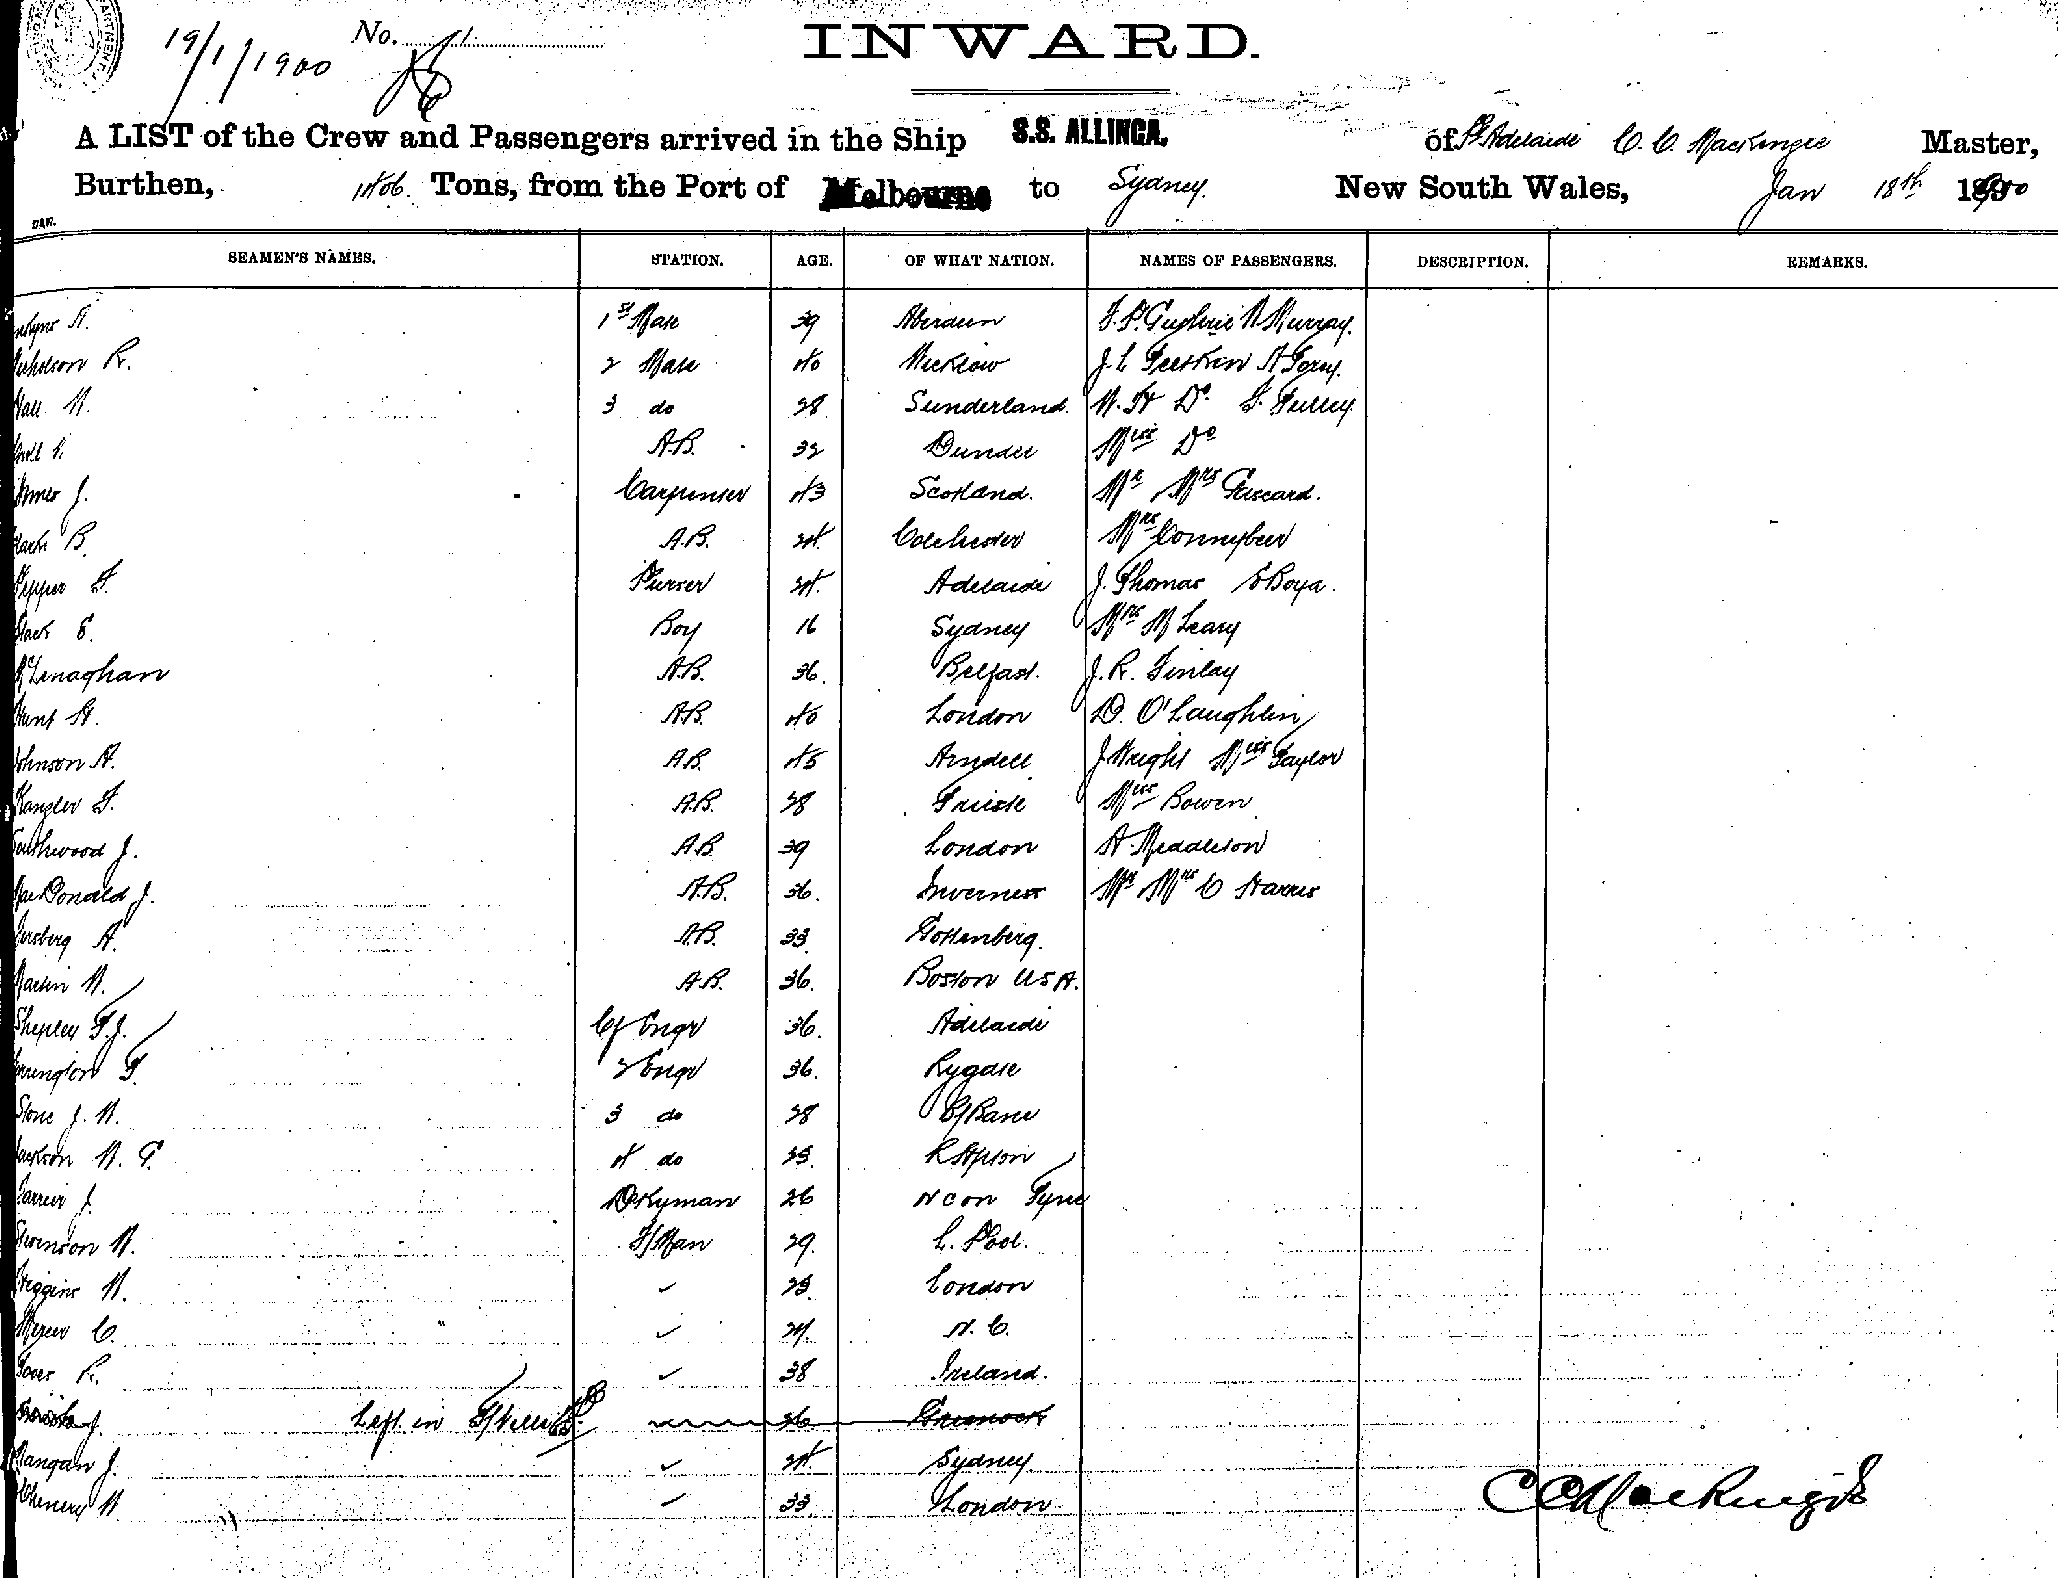 19/1/1900 No.
INWARD.
A LIST of the Crew and Passengers arrived in the Ship S.S. ALLINGA, of Pt Adelaide C. C. Mackenzie Master,
Burthen, 1406. Tons, from the Port of Melbourne to Sydney. New South Wales, Jan 18th 1900
SEAMEN'S NAMES. STATION. AGE. OF WHAT NATION. NAMES OF PASSENGERS. DESCRIPTION. REMARKS.
A. 1st Mate 39 Aberdeen F. P. Guthrie W Murray.
Nicholson R. 2 Mate 40 Wicklow J. L
Hall W. 3 do 28 Sunderland. W. H Do.
A.B. 32 Dundee Miss Do
J. Carpenter 43 Scotland. Mr Mrs
B. A.B. 24 Colchester Mrs Connybeer
Pepper F. Purser 24 Adelaide J. Thomas
Boy 16 Sydney Mrs McLeary
McLenaghan A.B. 36. Belfast. J. R. Finlay
Hunt H. A.B. 40 London D. O'Laughlin
Johnson A. A.B. 45 J Wright Miss Taylor
Kanzler F. A.B. 28 Trieste Miss Bowen
Southwood J. A.B. 39 London A. Middleton
MacDonald J. A.B. 36. Inverness Mr Mrs C Harris
A. A.B. 33 Gottenberg.
Martin W. A.B. 36. Boston USA.
Shepley F. J. Cf Engr 36. Adelaide
F. 2 Engr 36.
Stone J. W. 3 do 28 B/Bane
Jackson W. G. 4 do 23.
J. Dkyman 26 N C on Tyne
Stevenson W. F/Man 29. L. Pool.
Higgins W. ✓ 23. London
Mercer C. ✓ 24. N. C.
R. ✓ 38 Ireland.
J. Left in 26 Greenock
Mangan J. ✓ 24 Sydney
Chenery W ✓ 33. London
C C Mackenzie